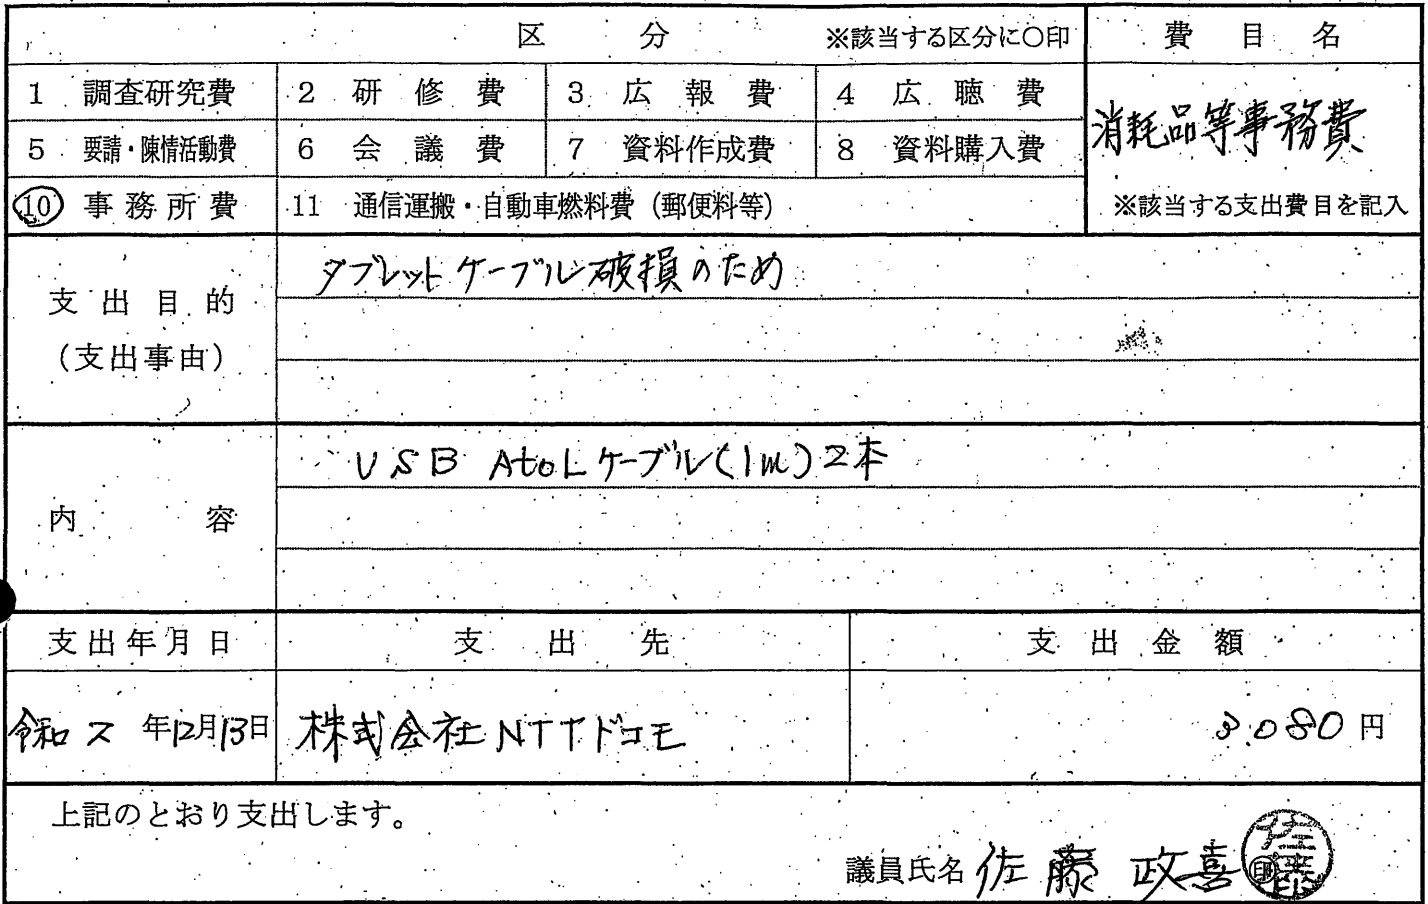 区 分 ※該当する区分に○印 費 目 名
1 調査研究費 2 研 修 費 3 広 報 費 4 広 聴 費
消耗品等事務費
5 要請・陳情活動費 6 会 議 費 7 資料作成費 8 資料購入費
10 事務所費 11 通信運搬・自動車燃料費（郵便料等） ※該当する支出費目を記入
支出目的
（支出事由）
タブレットケーブル破損のため
内 容
USB AtoLケーブル(1m)2本
支出年月日 支 出 先 支 出 金 額
令和 2 年12月13日 株式会社NTTドコモ 3.080円
上記のとおり支出します。
議員氏名 佐藤 政喜 佐藤 印